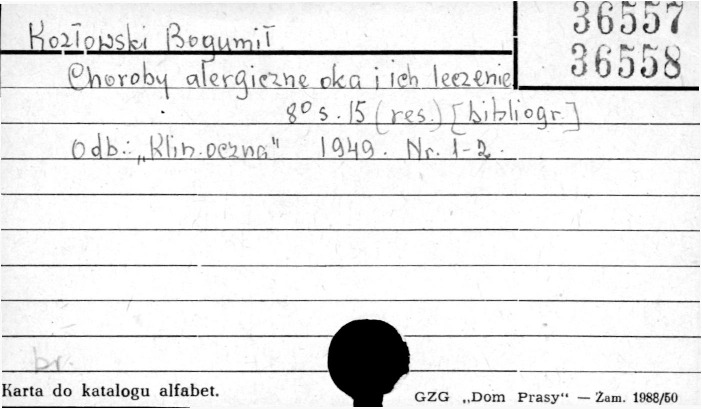 36557
Kozłowski Bogumił
36558
Choroby alergiczne oka i ich leczenie
8° s. 15 (res.) [bibliogr.]
Odb.: „Klin. oczna" 1949. Nr. 1-2.
br.
Karta do katalogu alfabet.
GZG „Dom Prasy“ — Zam. 1988/50